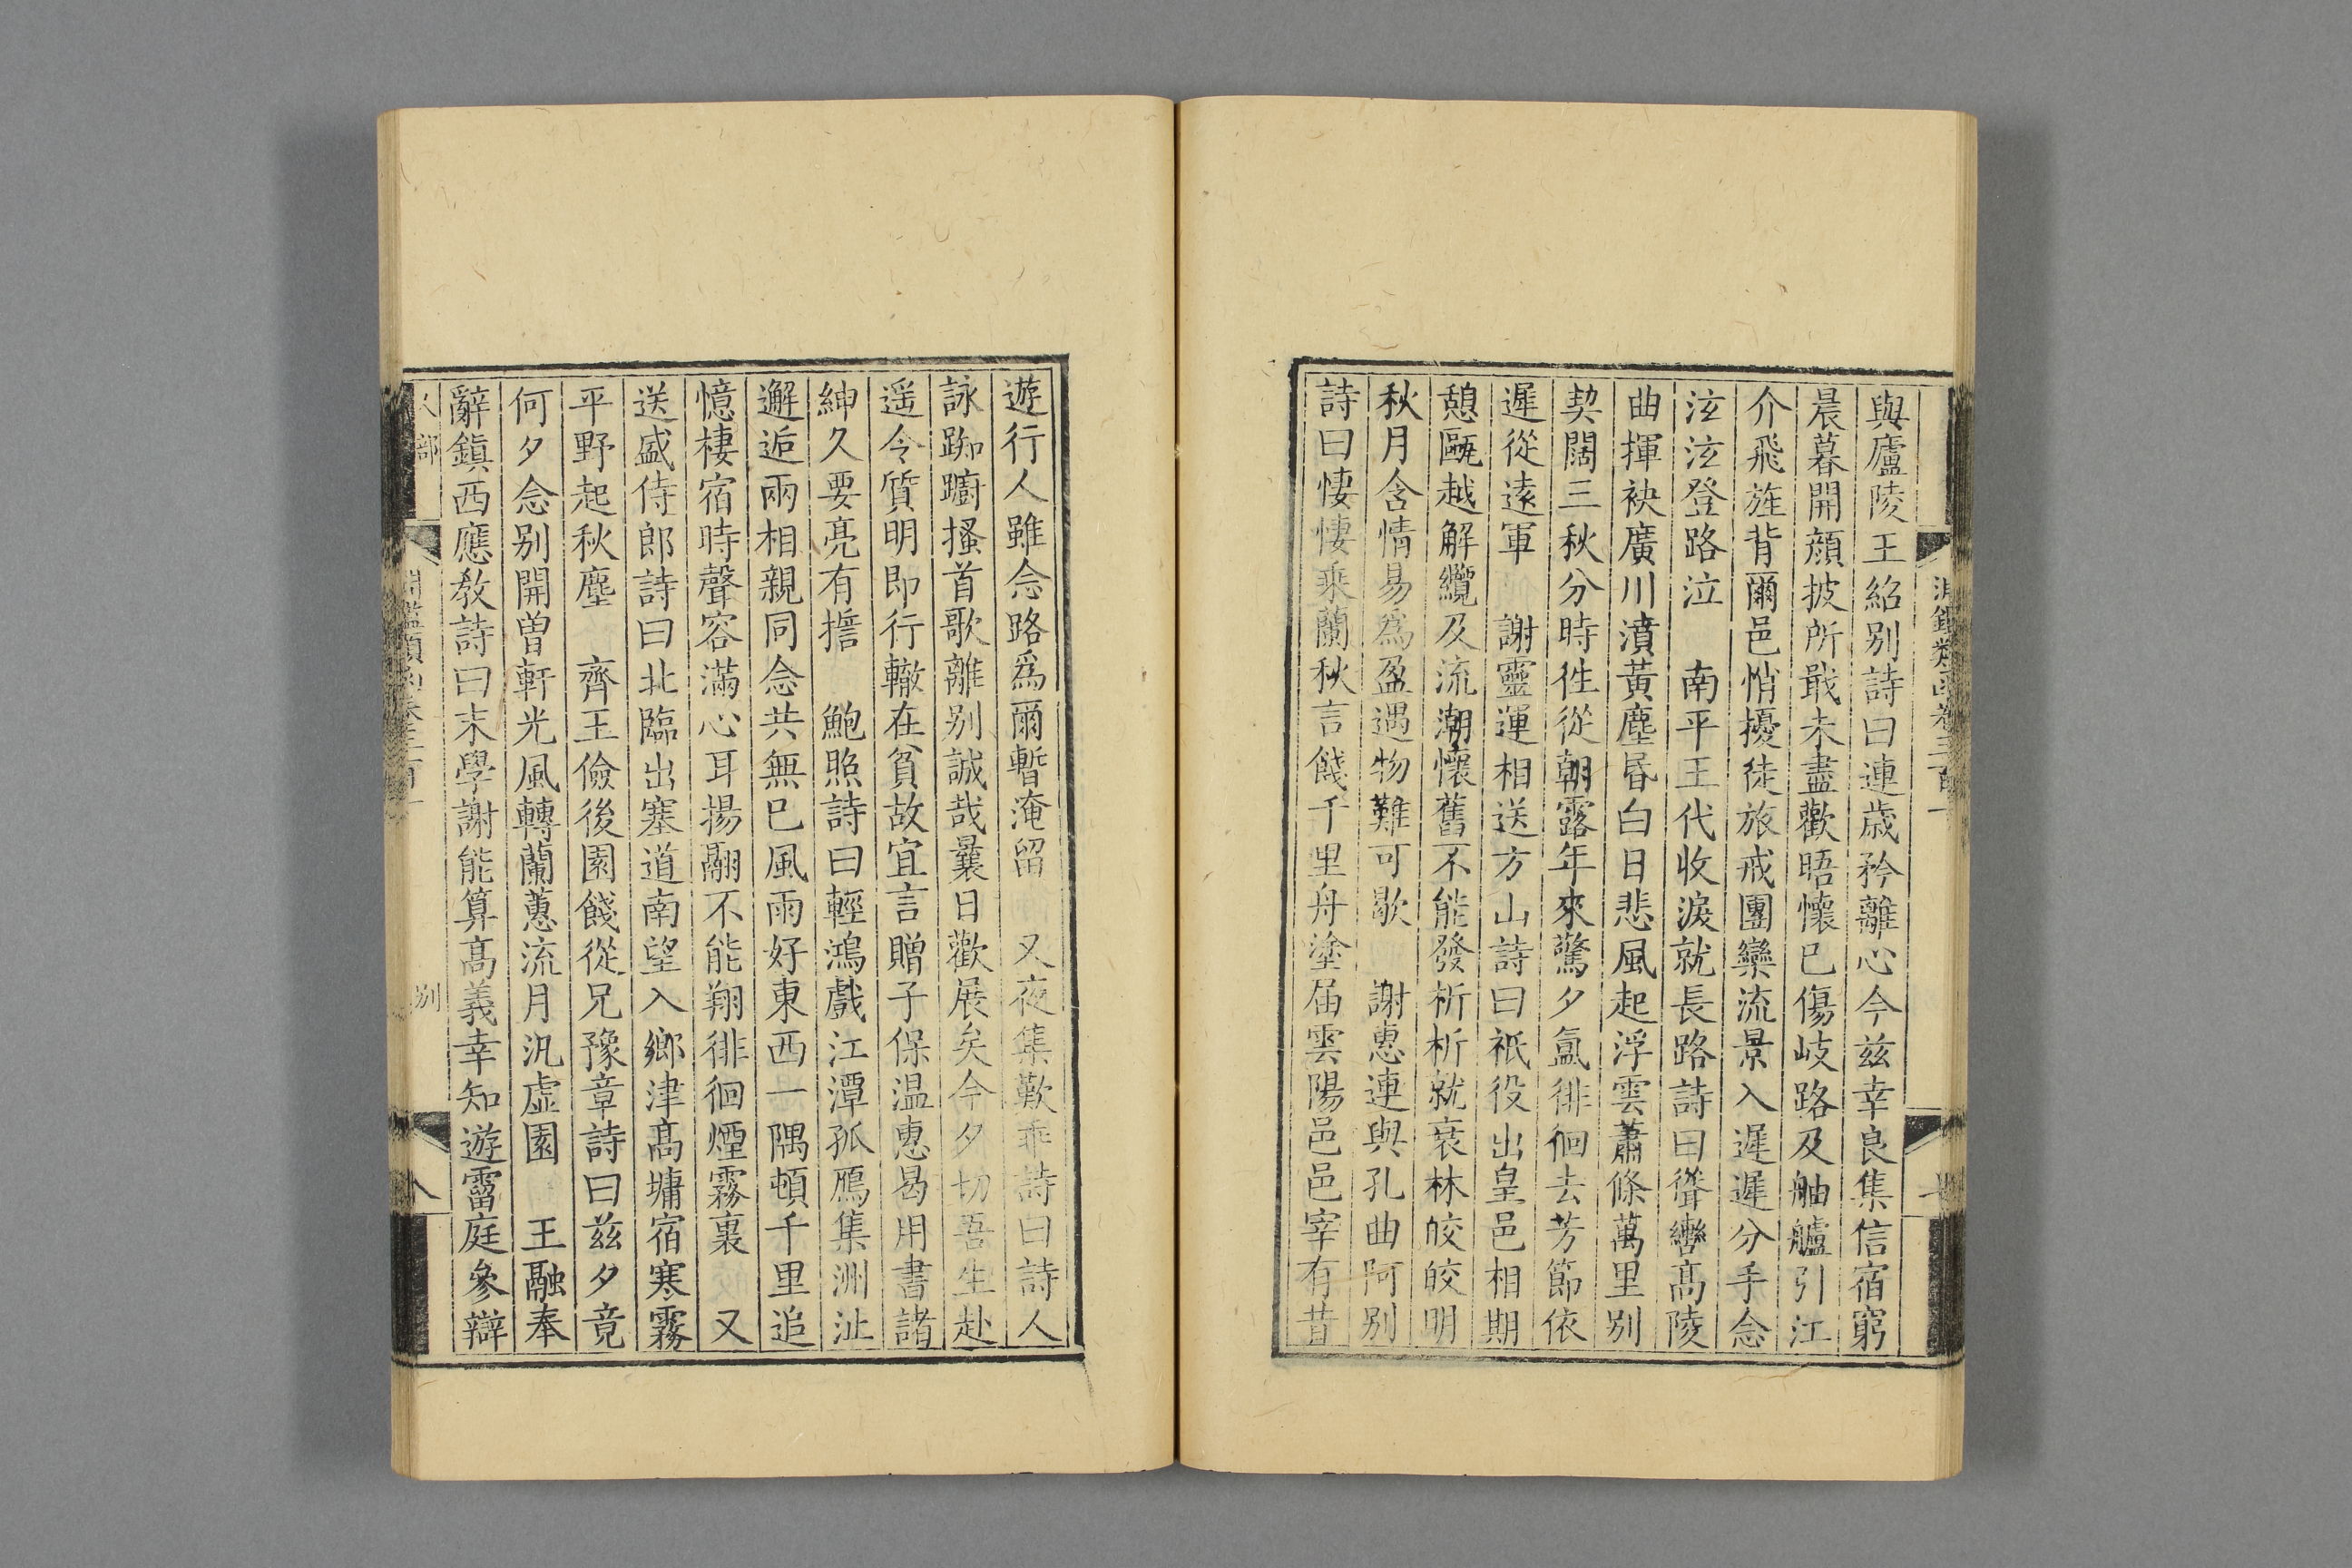 淵鑑類函卷三百一
與廬陵王紹别詩曰連歲矜離心今兹幸良集信宿窮
晨暮開顔披所戢未盡歡晤懷已傷岐路及舳艫引江
介飛旌背爾邑悄擾徒旅戒團欒流景入遲遲分手念
泫泫登路泣　南平王代收淚就長路詩曰聳轡髙陵
曲揮袂廣川濆黃塵昬白日悲風起浮雲蕭條萬里别
契闊三秋分時徃從朝露年來驚夕氲徘徊去芳節依
遲從逺軍　謝靈運相送方山詩曰祇役出皇邑相期
憩甌越解纜及流潮懷舊不能發析析就衰林皎皎明
秋月含情易爲盈遇物難可歇　謝惠連與孔曲阿别
詩曰悽悽乘蘭秋言餞千里舟塗届雲陽邑邑宰有昔
遊行人雖念路爲爾暫淹留　又夜集歎乖詩曰詩人
詠踟躕搔首歌離别誠哉曩日歡展矣今夕切吾生赴
遥令質明即行轍在貧故宜言贈子保温惠曷用書諸
紳久要亮有擔　鮑照詩曰輕鴻戲江潭孤鴈集洲沚
邂逅兩相親同念共無已風雨好東西一隅頓千里追
憶棲宿時聲容滿心耳揚翮不能翔徘徊煙霧裏　又
送盛侍郎詩曰北臨出塞道南望入鄉津髙墉宿寒霧
平野起秋塵　齊王儉後園餞從兄豫章詩曰兹夕竟
何夕念别開曽軒光風轉蘭蕙流月汎虚園　王融奉
辭鎭西應教詩曰末學謝能算髙義幸知遊霤庭參辯
人部　淵鑑類函卷三百一　别　八